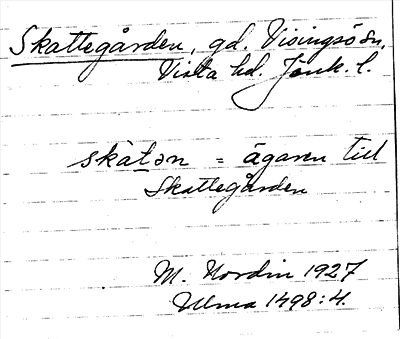 Skattegården, gd. Visingsö sn,
Vista hd. Jönk. l.
skàtən = ägaren till
Skattegården
M. Nordin 1927
Ulma 1498:4.